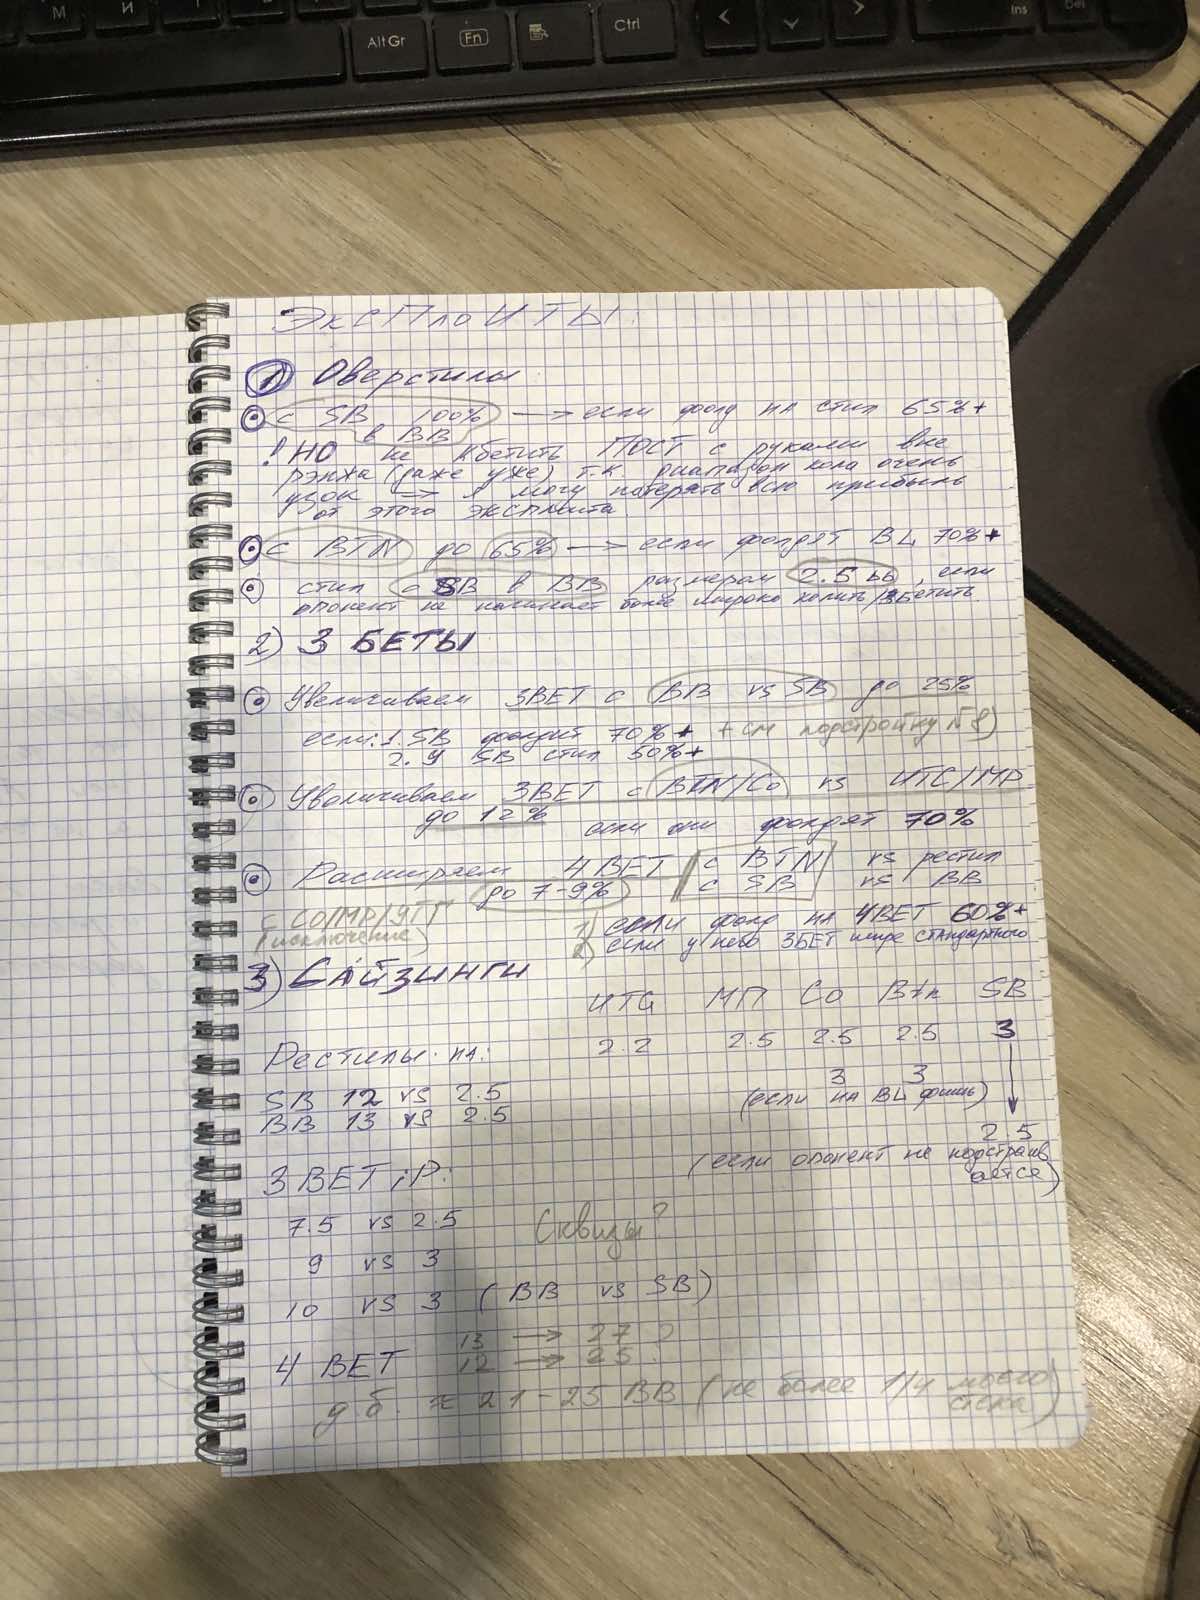 М
И
Alt Gr
Fn
Ctrl
<
>
Ins
Del
ЭКСПЛОИТЫ:
1) Оверстилы
с SB 100% → если фолд на стил 65%+
в BB
! НО не кбетить ПОСТ с руками вне
рэнжа (даже уже) т.к диапазон кола очень
узок → я могу потерять всю прибыль
от этого эксплоита
с BTN до 65% → если фолдят BL 70%+
стил с SB в BB размером 2.5 bb, если
опонент не начинает более широко колить/3бетить
2) 3 БЕТЫ
Увеличиваем 3BET с BB vs SB до 25%
если: 1. SB фолдит 70%+ + см подстройку №8)
2. У SB стил 50%+
Увеличиваем 3BET с BTN/Co vs UTG/MP
до 12% если они фолдят 70%
Расширяем 4BET с BTN vs рестил
до 7-9% с SB vs BB
с CO/MP/УТГ 1) если фолд на 4BET 60%+
(исключение) 2) если у него 3БЕТ шире стандартного
3) САЙЗИНГИ
UTG МП Co Btn SB
Рестилы на: 2.2 2.5 2.5 2.5 3
3 3
SB 12 vs 2.5 (если на BL фишь)
BB 13 vs 2.5
2.5
3BET iP: (если опонент не подстраив
ается)
7.5 vs 2.5 Сквизы?
9 vs 3
10 vs 3 (BB vs SB)
13 → 27 ?
4 BET 12 → 25
д.б. ≈ 21-25 BB (не более 1/4 моего
стека)